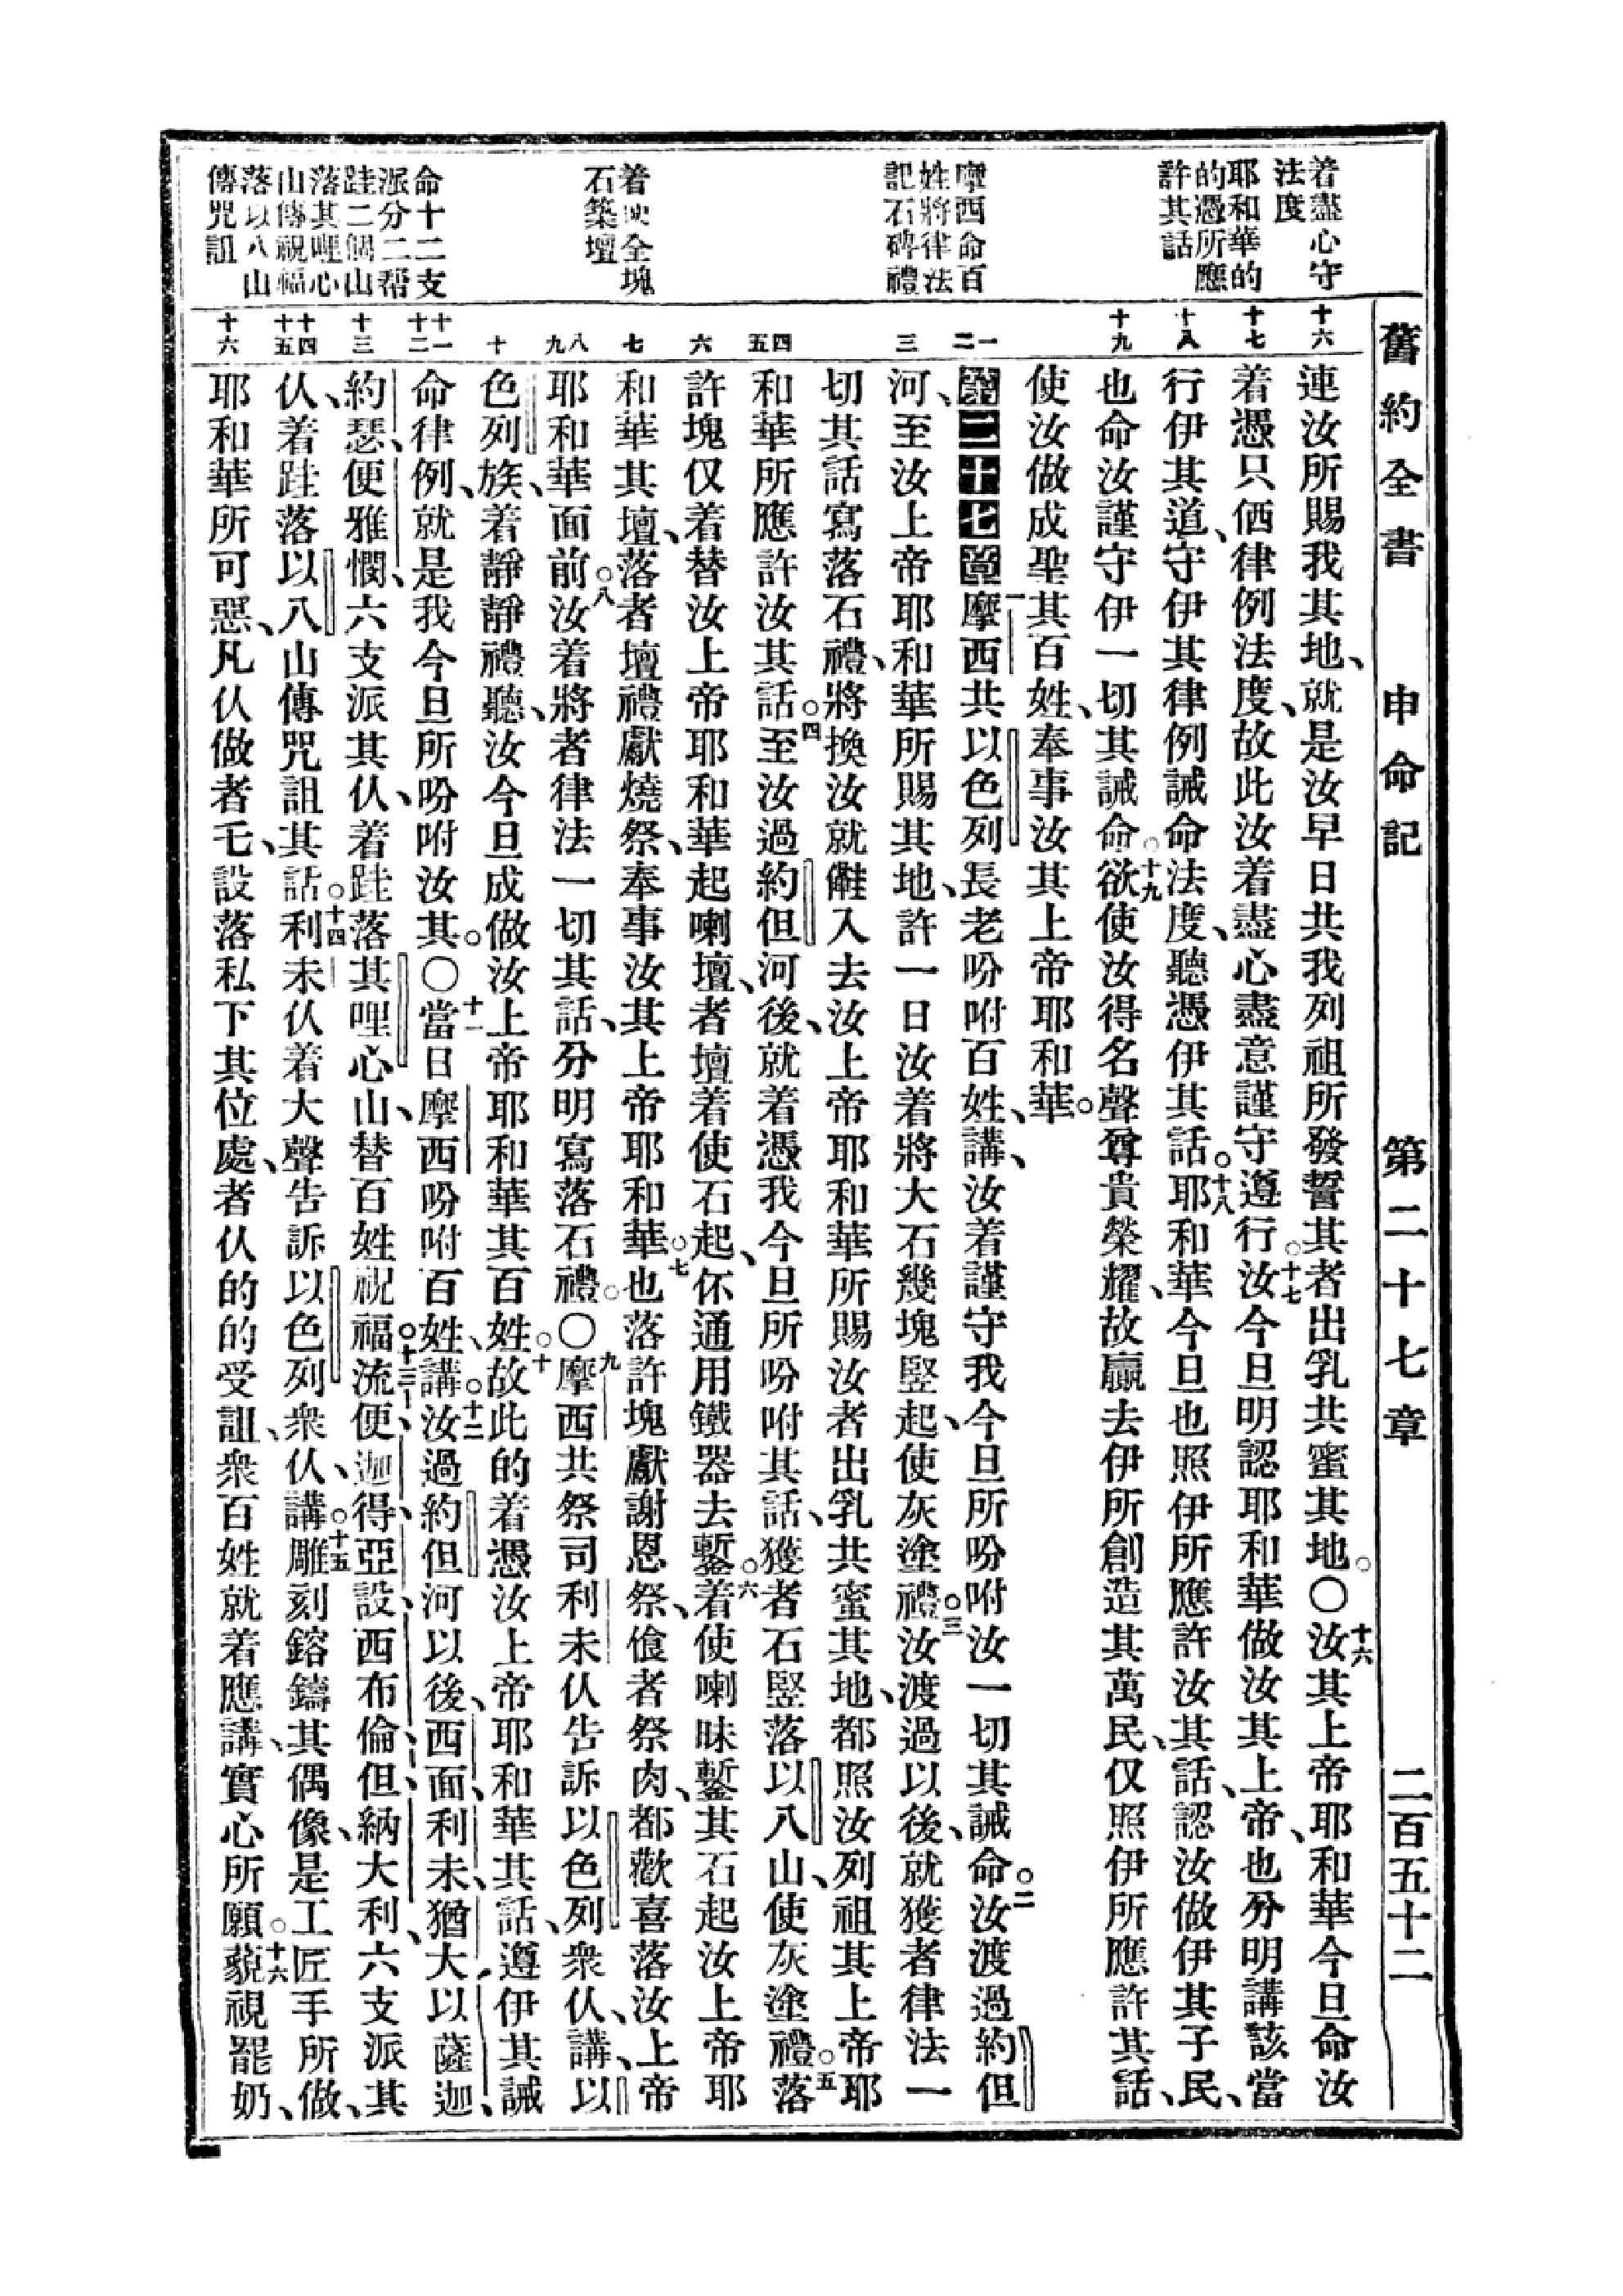 舊約全書　申命記　第二十七章　二百五十二
着盡心守
法度
耶和華的
的憑所應
許其話
摩西命百
姓將律法
記石碑禮
着使全塊
石築壇
命十二支
派分二幫
跬二個山
落其哩心
山傳祝福
落以八山
傳咒詛
十六
十七
十八
十九
一二
三
四五
六
七
八九
十
十一十二
十三
十四十五
十六
連汝所賜我其地、就是汝早日共我列祖所發誓其者出乳共蜜其地。〇十六汝其上帝耶和華今旦命汝
着憑只伵律例法度、故此汝着盡心盡意謹守遵行。十七汝今旦明認耶和華做汝其上帝、也分明講該當
行伊其道、守伊其律例誡命法度、聽憑伊其話。十八耶和華今旦也照伊所應許汝其話、認汝做伊其子民、
也命汝謹守伊一切其誡命。十九欲使汝得名聲尊貴榮耀、故贏去伊所創造其萬民、仅照伊所應許其話、
使汝做成聖其百姓、奉事汝其上帝耶和華。
第二十七章一摩西共以色列長老吩咐百姓、講、汝着謹守我今旦所吩咐汝一切其誡命。二汝渡過約但
河、至汝上帝耶和華所賜其地、許一日汝着將大石幾塊竪起、使灰塗禮。三汝渡過以後、就獲者律法一
切其話寫落石禮、將換汝就雠入去汝上帝耶和華所賜汝者出乳共蜜其地、都照汝列祖其上帝耶
和華所應許汝其話。四至汝過約但河後、就着憑我今旦所吩咐其話、獲者石竪落以八山、使灰塗禮。五落
許塊仅着替汝上帝耶和華起喇壇、者壇着使石起、伓通用鐵器去鏨。六着使喇昧鏨其石起汝上帝耶
和華其壇、落者壇禮獻燒祭、奉事汝其上帝耶和華。七也落許塊獻謝恩祭、飡者祭肉、都歡喜落汝上帝
耶和華面前。八汝着將者律法一切其話、分明寫落石禮。〇九摩西共祭司利未仈告訴以色列衆仈、講、以
色列族、着靜靜禮聽、汝今旦成做汝上帝耶和華其百姓。十故此的着憑汝上帝耶和華其話、遵伊其誡
命律例、就是我今旦所吩咐汝其。〇十一當日摩西吩咐百姓、講。十二汝過約但河以後、西面、利未、猶大、以薩迦、
約瑟、便雅憫、六支派其仈、着跬落其哩心山、替百姓祝福。十三流便、迦得、亞設、西布倫、但、納大利、六支派其
仈、着跬落以八山傳咒詛其話。十四利未仈着大聲告訴以色列衆仈、講。十五雕刻鎔鑄其偶像、是工匠手所做、
耶和華所可惡、凡仈做者乇、設落私下其位處、者仈的的受詛、衆百姓就着應講、實心所願。十六藐視罷奶、